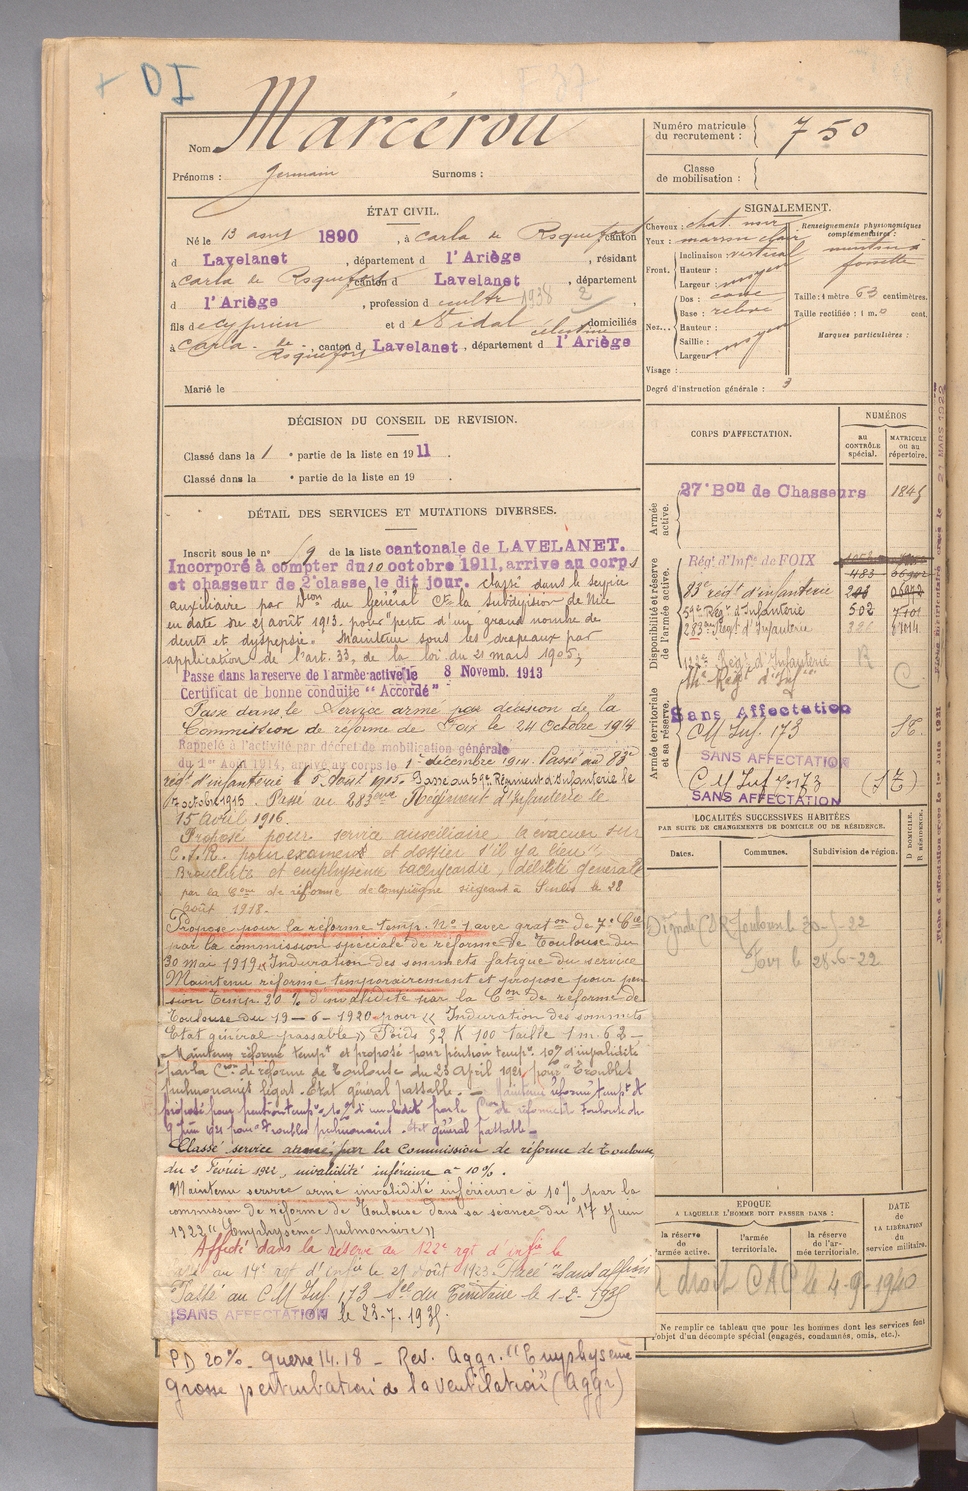 DI
Nom Marcérou
Prénoms : Germain Surnoms :
Numéro matricule du recrutement : 750
Classe de mobilisation :
ÉTAT CIVIL.
Né le 13 avril 1890, à Carla de Roquefort, canton
d Lavelanet, département d l'Ariège, résidant
à Carla de Roquefort, canton d Lavelanet, département
d l'Ariège, profession de cultr 1938 2,
fils de Cyprien et de Vidal Célestine, domiciliés
à Carla de Roquefort, canton d Lavelanet, département d l'Ariège
Marié le
SIGNALEMENT.
Cheveux : chat. noir
Yeux : marron clair
Front. Inclinaison : vertical
Hauteur :
Largeur : moyen
Nez... Dos : cave
Base : relevé
Hauteur :
Saillie :
Largeur : moyen
Visage :
Renseignements physionomiques complémentaires :
menton à
fossette
Taille : 1 mètre 63 centimètres.
Taille rectifiée : 1 m. 0 cent.
Marques particulières :
Degré d'instruction générale : 3
DÉCISION DU CONSEIL DE REVISION.
Classé dans la 1e partie de la liste en 1911.
Classé dans la e partie de la liste en 19 .
DÉTAIL DES SERVICES ET MUTATIONS DIVERSES.
Inscrit sous le n° 19 de la liste cantonale de LAVELANET.
Incorporé à compter du 10 octobre 1911, arrive au corps
et chasseur de 2e classe, le dit jour. Classé dans le service
auxiliaire par Dion du Général Ct la subdivision de Nice
en date du 21 août 1913. pour "perte d'un grand nombre de
dents et dyspepsie". Maintenu sous les drapeaux par
application de l'art. 33, de la loi du 21 mars 1905;
Passe dans la reserve de l'armée active le 8 Novemb. 1913
Certificat de bonne conduite "Accordé"
Passé dans le Service armé par décision de la
Commission de réforme de Foix le 24 Octobre 1914
Rappelé à l'activité par décret de mobilisation générale
du 1er Août 1914, arrivé au corps le 1er décembre 1914. Passé au 83e
régt d'infanterie le 5 Août 1915. Passé au 59e Régiment d'Infanterie le
7 octobre 1915. Passé au 283ème Régiment d'Infanterie le
15 Avril 1916.
Proposé pour service auxiliaire à évacuer sur
C.S.R. pour examens et dossier s'il y a lieu"
Bronchite et emphysème tachycardie, débilité générale
par la Con de réforme de Compiègne siégeant à Senlis le 28
Août 1918.
Proposé pour la réforme temp. No 1 avec graton de 7e Cie
par la commission spéciale de réforme de Toulouse du
30 mai 1919 "Induration des sommets fatigue du service
Maintenu réformé temporairement et proposé pour pen
sion Temp. 20 % d'invalidité par la Con de réforme de
Toulouse du 19-6-1920 pour « Induration des sommets
Etat général passable » Poids 52 K 100 Taille 1m 62
Maintenu réformé tempt et proposé pour pension tempre 10% d'invalidité
par la Con de réforme de Toulouse du 23 avril 1921 pour "Troubles
pulmonaires légers. Etat général passable. - Maintenu réformé tempt et
proposé pour pension tempre 10% d'invalidité par la Con de réforme de Toulouse du
9 juin 1921 pour Troubles pulmonaires. Etat général passable -
Classé service armé par la Commission de réforme de Toulouse
du 2 Février 1922, invalidité inférieure à 10%.
Maintenu service armé invalidité inférieure à 10% par la
commission de réforme de Toulouse dans sa séance du 17 Juin
1922 "Emphysème pulmonaire"
Affecté dans la réserve au 122e rgt d'infie le
au 14e rgt d'infie le 21 août 1923. Placé "Sans affon
Passé au CM Inf. 173 le 1-2-1935
SANS AFFECTATION le 23.7.1935.
PD 20% - guerre 14.18 - Rev. Aggr. "Emphysème
grosse perturbation de la ventilation" (Aggr)
CORPS D'AFFECTATION.
NUMÉROS
au CONTRÔLE spécial.
MATRICULE ou au répertoire.
Armée active.
27e Bon de Chasseurs 1845
Disponibilité et réserve de l'armée active.
Régt d'Infie de FOIX
83e régt d'infanterie
59e Régt d'Infanterie 502
283me Regt d'Infanterie
122e Regt d'Infanterie R
Armée territoriale et sa réserve.
14e Regt d'Infie C
Sans Affectation
CM Inf. 173
SANS AFFECTATION
CM Inf no 173
SANS AFFECTATION
LOCALITÉS SUCCESSIVES HABITÉES
PAR SUITE DE CHANGEMENTS DE DOMICILE OU DE RÉSIDENCE.
Dates.
Communes.
Subdivision de région.
D DOMICILE. R RÉSIDENCE.
CDR Toulouse le 30-5-22
le 28-6-22
EPOQUE
A LAQUELLE L'HOMME DOIT PASSER DANS :
la réserve de l'armée active.
l'armée territoriale.
la réserve de l'armée territoriale.
DATE de LA LIBÉRATION du service militaire.
A droit CAC le 4-9-1940
Ne remplir ce tableau que pour les hommes dont les services font
l'objet d'un décompte spécial (engagés, condamnés, omis, etc.).